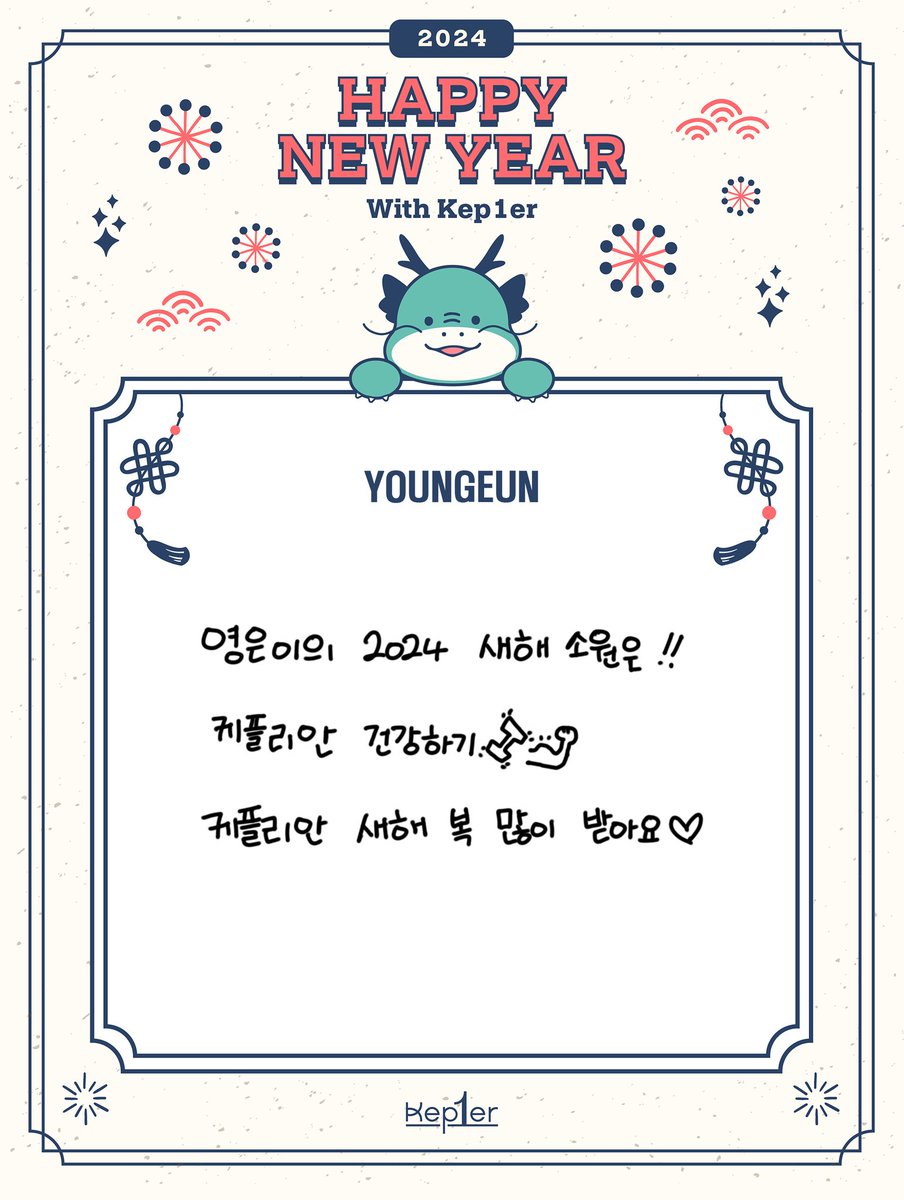 2024
HAPPY
NEW YEAR
With Kep1er
YOUNGEUN
영은이의 2024 새해 소원은!!
케플리안 건강하기
케플리안 새해 복 많이 받아요♡
Kep1er